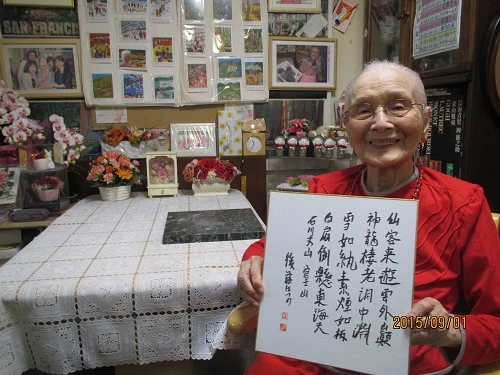 SAN FRANC
仙客来遊雲外巓
神龍棲老洞中淵
雪如紈素煙如柄
白扇倒懸東海天
石川丈山 富士山
後藤はつの
2015/09/01